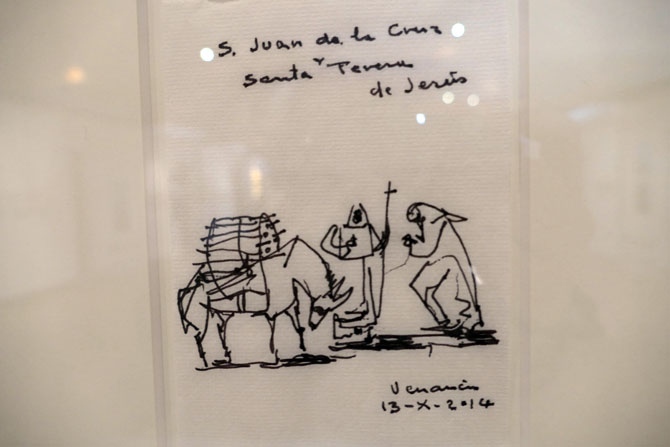 S. Juan de la Cruz
y
Santa Teresa
de Jesús
Venancio
13-X-2014